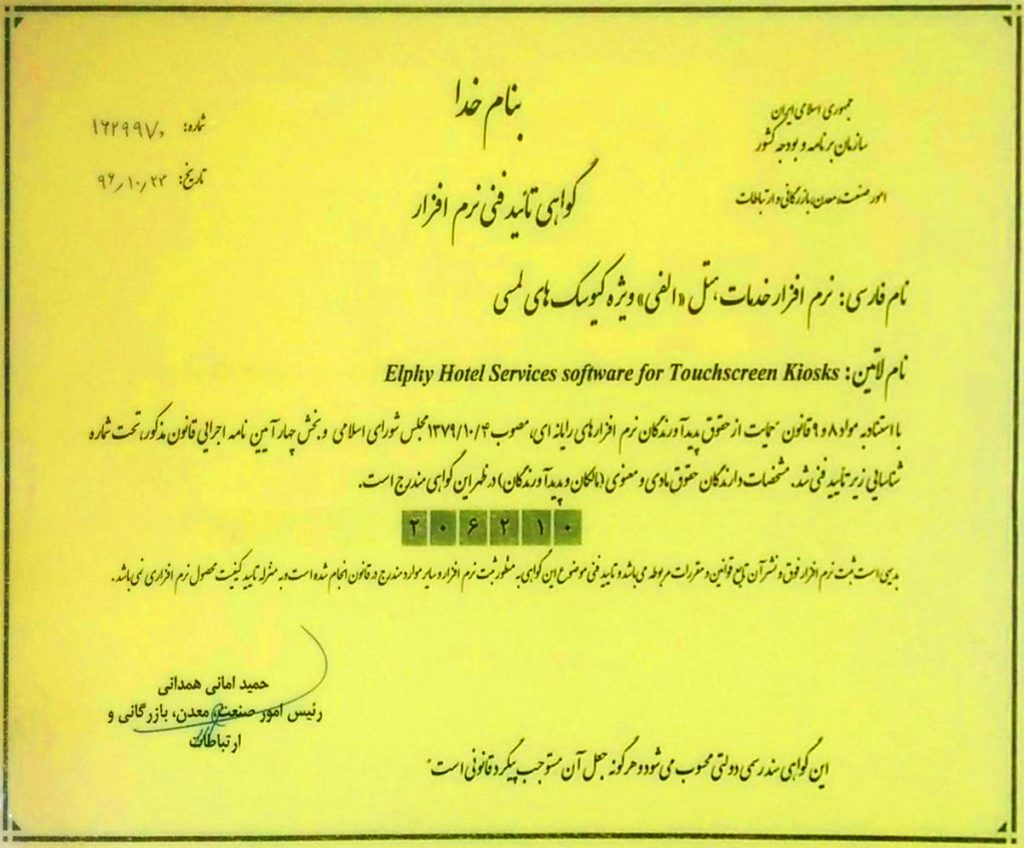 بنام خدا
جمهوری اسلامی ایران
سازمان برنامه و بودجه کشور
امور صنعت، معدن، بازرگانی و ارتباطات
شماره: ۱۶۲۹۹۷۰
تاریخ: ۹۶/۱۰/۲۳
گواهی تائید فنی نرم افزار
نام فارسی: نرم افزار خدمات هتل «الفی» ویژه کیوسک های لمسی
نام لاتین: Elphy Hotel Services software for Touchscreen Kiosks
با استناد به مواد ۸ و ۹ قانون حمایت از حقوق پدیدآورندگان نرم افزارهای رایانه ای، مصوب ۱۳۷۹/۱۰/۴ مجلس شورای اسلامی و بخش چهار آیین نامه اجرائی قانون مذکور، تحت شماره
شناسایی زیر تأیید فنی شد. مشخصات دارندگان حقوق مادی و معنوی (مالکان و پدیدآورندگان) در ظهر این گواهی مندرج است.
۲۰۶۲۱۰
بدیهی است ثبت نرم افزار فوق و نشر آن تابع قوانین و مقررات مربوطه می باشد و تایید فنی موضوع این گواهی به منظور ثبت نرم افزار و سایر موارد مندرج در قانون انجام شده است و به منزله تایید کیفیت محصول نرم افزاری نمی باشد.
حمید امانی همدانی
رئیس امور صنعت، معدن، بازرگانی و
ارتباطات
این گواهی سند رسمی دولتی محسوب می شود و هرگونه جعل آن مستوجب پیگرد قانونی است.